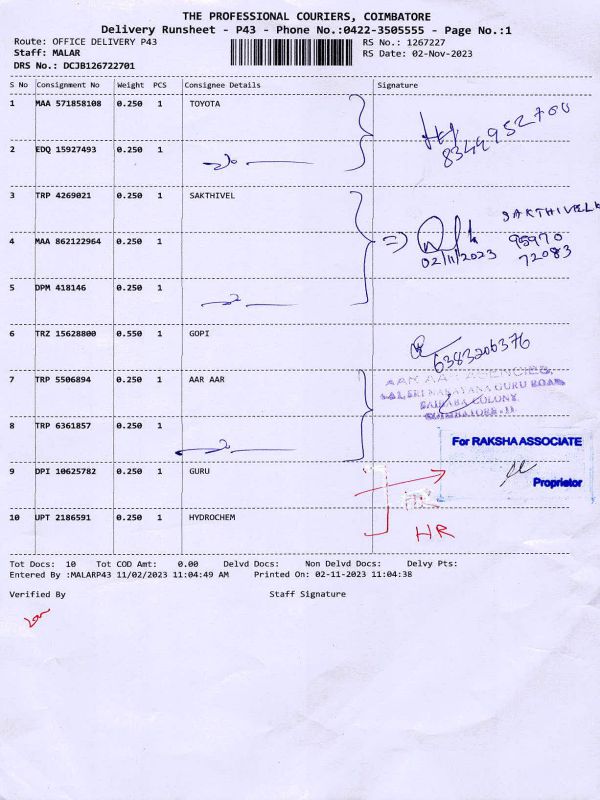 THE PROFESSIONAL COURIERS, COIMBATORE
Delivery Runsheet - P43 - Phone No.:0422-3505555 - Page No.:1
Route: OFFICE DELIVERY P43
RS No.: 1267227
Staff: MALAR
RS Date: 02-Nov-2023
DRS No.: DCJB126722701
S No Consignment No Weight PCS Consignee Details Signature
1 MAA 571858108 0.250 1 TOYOTA
8344952700
2 EDQ 15927493 0.250 1
3 TRP 4269021 0.250 1 SAKTHIVEL
SAKTHIVEL K
4 MAA 862122964 0.250 1
95970
02/11/2023 72083
5 DPM 418146 0.250 1
6 TRZ 15628800 0.550 1 GOPI
6383206376
7 TRP 5506894 0.250 1 AAR AAR
AAR AAR AGENCIES,
SRI NARAYANA GURU ROAD
SAIBABA COLONY,
COIMBATORE-11
8 TRP 6361857 0.250 1
For RAKSHA ASSOCIATE
9 DPI 10625782 0.250 1 GURU
Proprietor
HR
10 UPT 2186591 0.250 1 HYDROCHEM
HR
Tot Docs: 10 Tot COD Amt: 0.00 Delvd Docs: Non Delvd Docs: Delvy Pts:
Entered By :MALARP43 11/02/2023 11:04:49 AM Printed On: 02-11-2023 11:04:38
Verified By Staff Signature